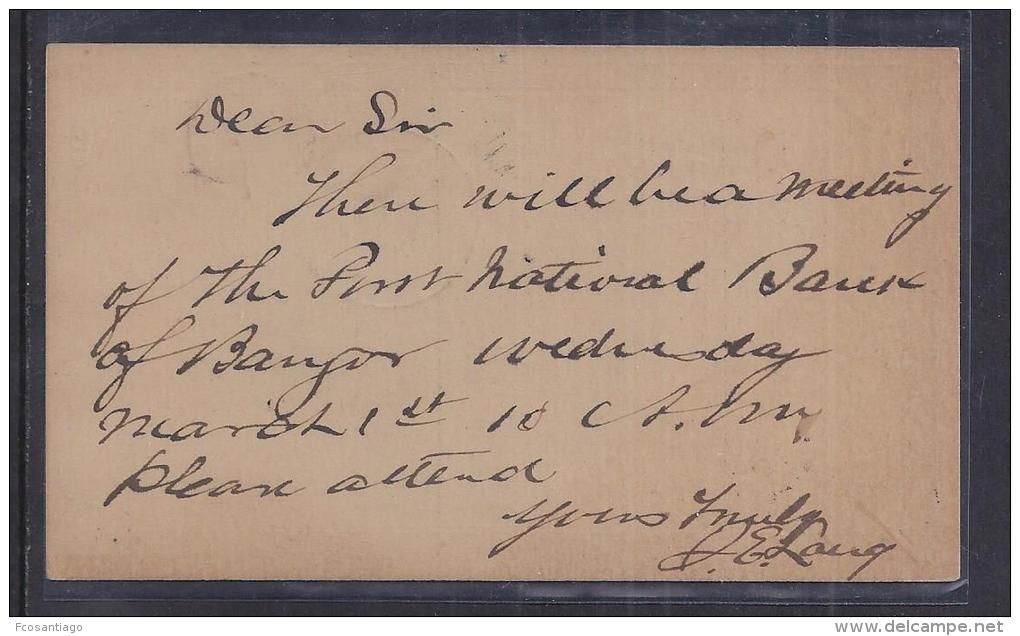 Dear Sir
There will be a meeting
of the First National Bank
of Bangor Wednesday
March 1st 10 A.M.
Please attend
Yours Truly
J. E. Lang
Fcosantiago
delcampe.net